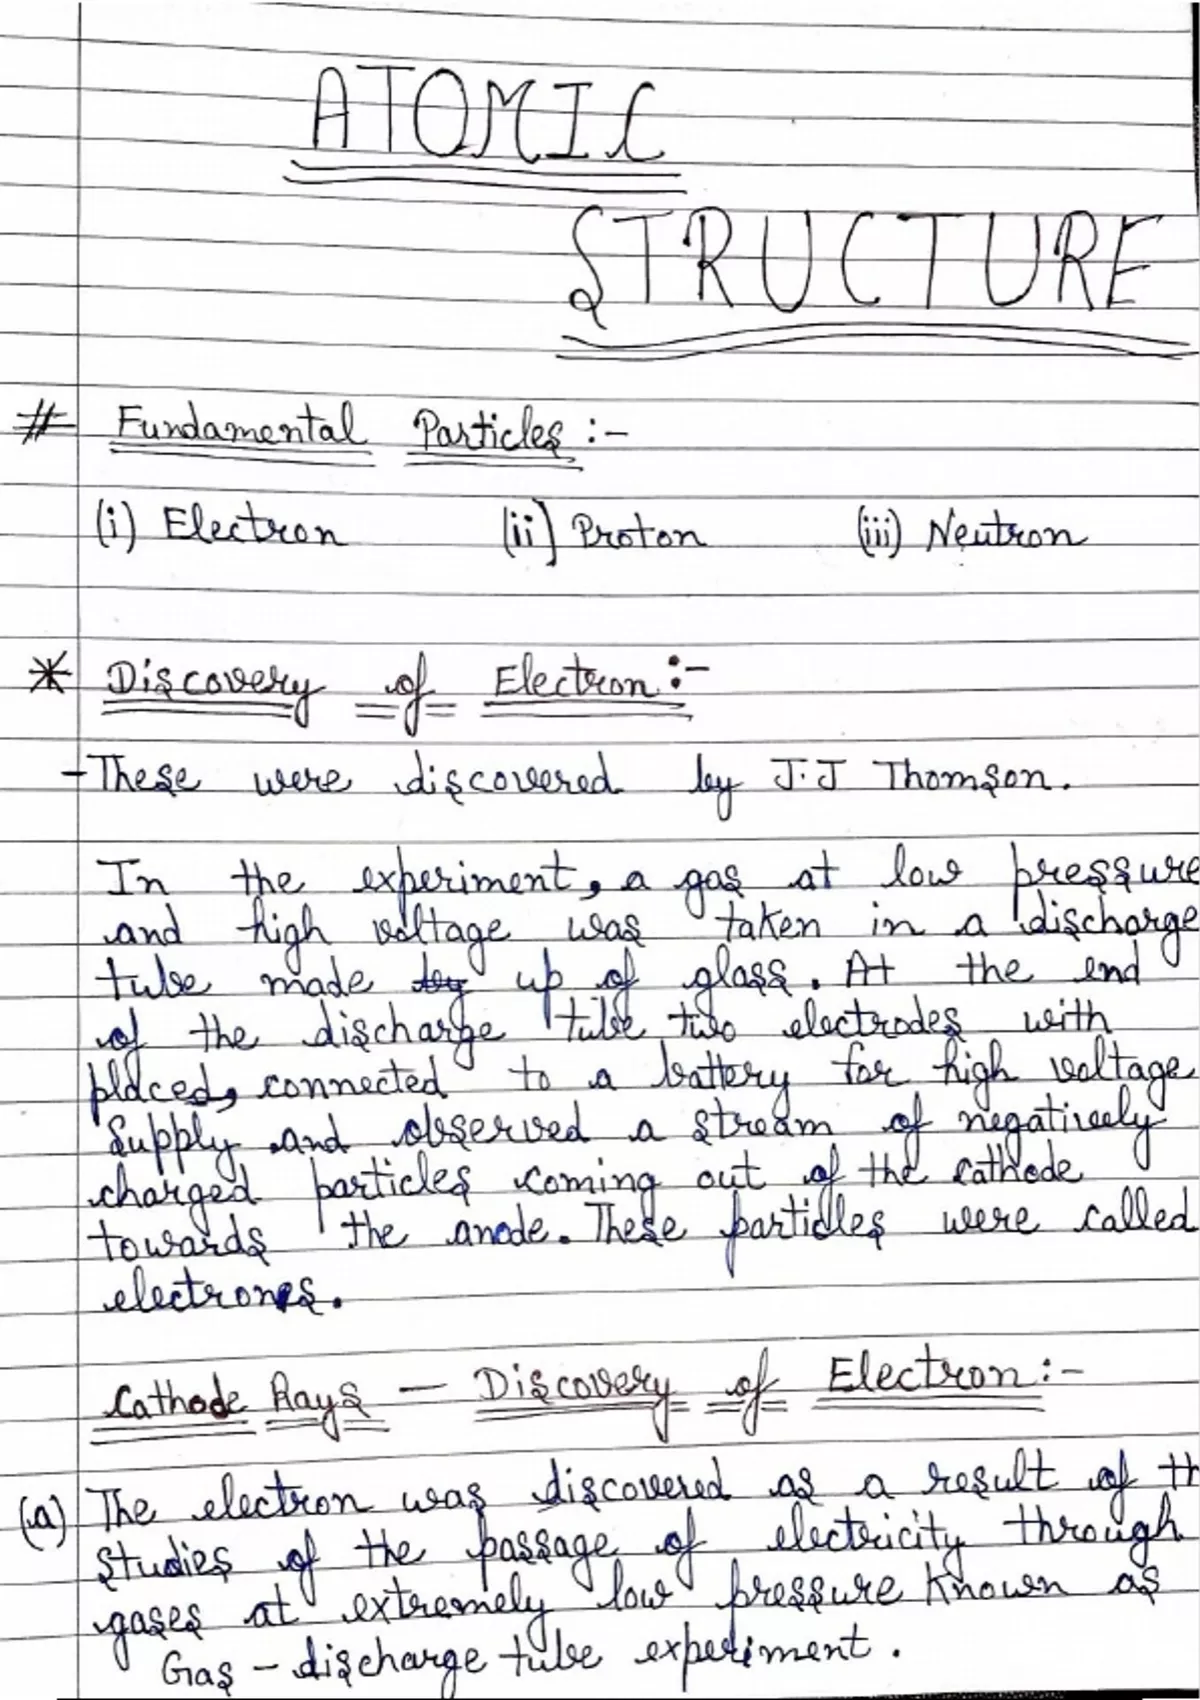 ATOMIC
STRUCTURE
# Fundamental Particles :-
(i) Electron (ii) Proton (iii) Neutron
* Discovery of Electron :-
- These were discovered by J.J Thomson.
In the experiment, a gas at low pressure
and high voltage was taken in a discharge
tube made by up of glass. At the end
of the discharge tube two electrodes with
placed, connected to a battery for high voltage
Supply and observed a stream of negatively
charged particles coming out of the cathode
towards the anode. These particles were called
electrones.
Cathode Rays — Discovery of Electron :-
(a) The electron was discovered as a result of th
studies of the passage of electricity through
gases at extremely low pressure Known as
Gas - discharge tube experiment.